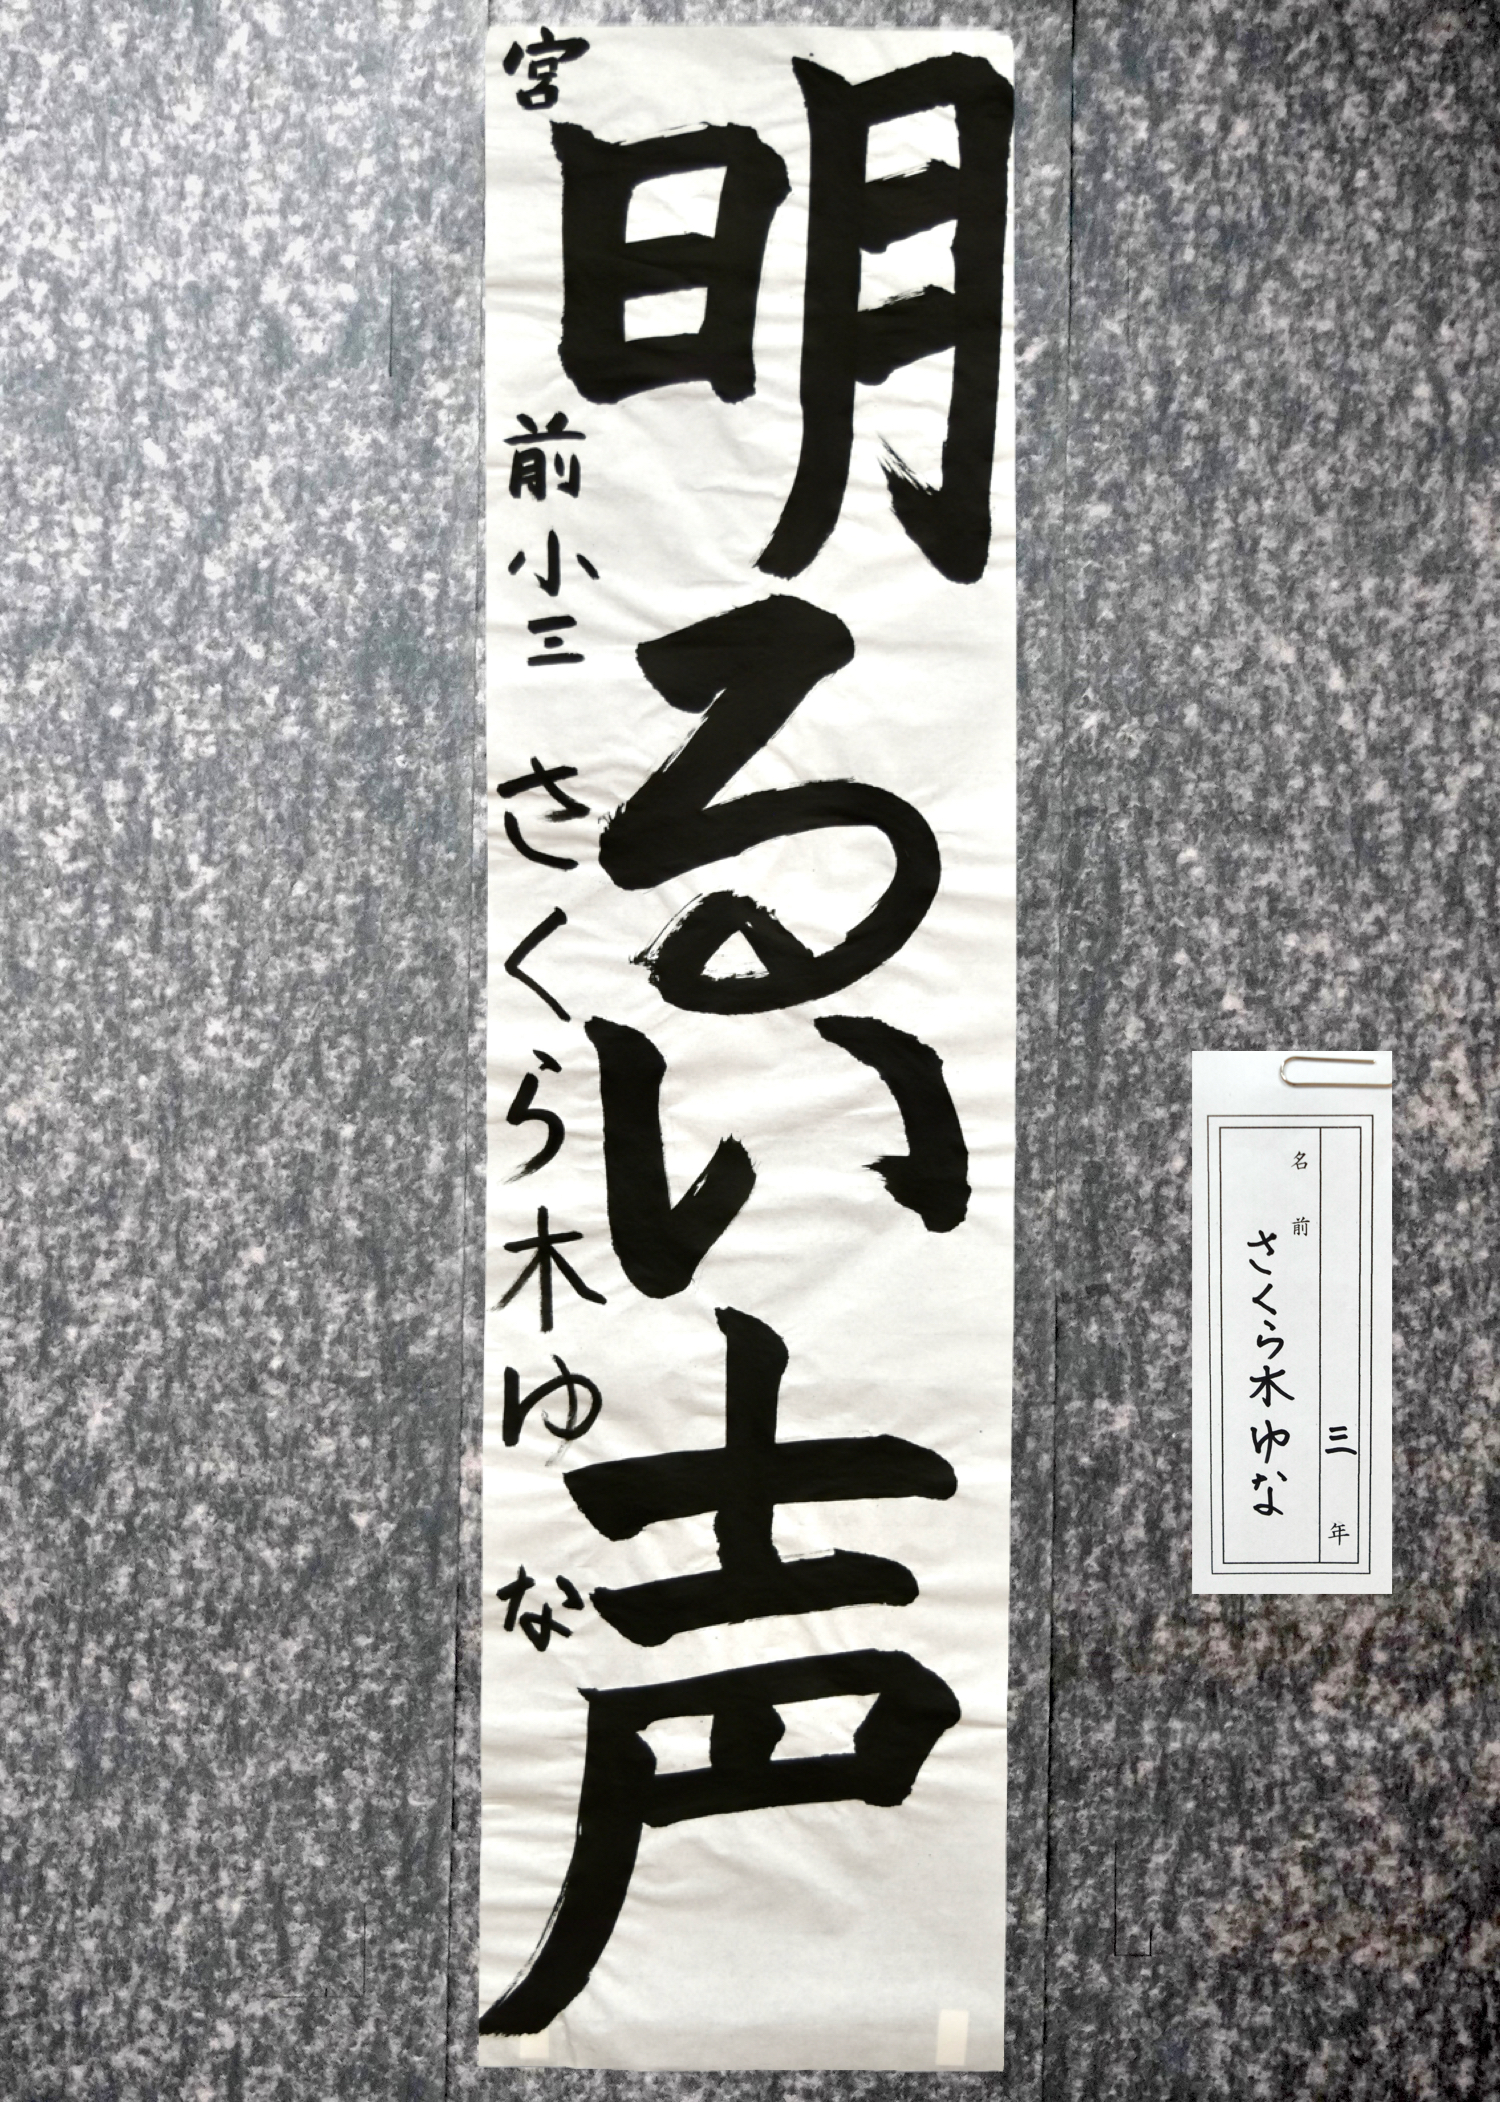 明るい声
宮前小三 さくら木ゆな
三年
名前
さくら木ゆな